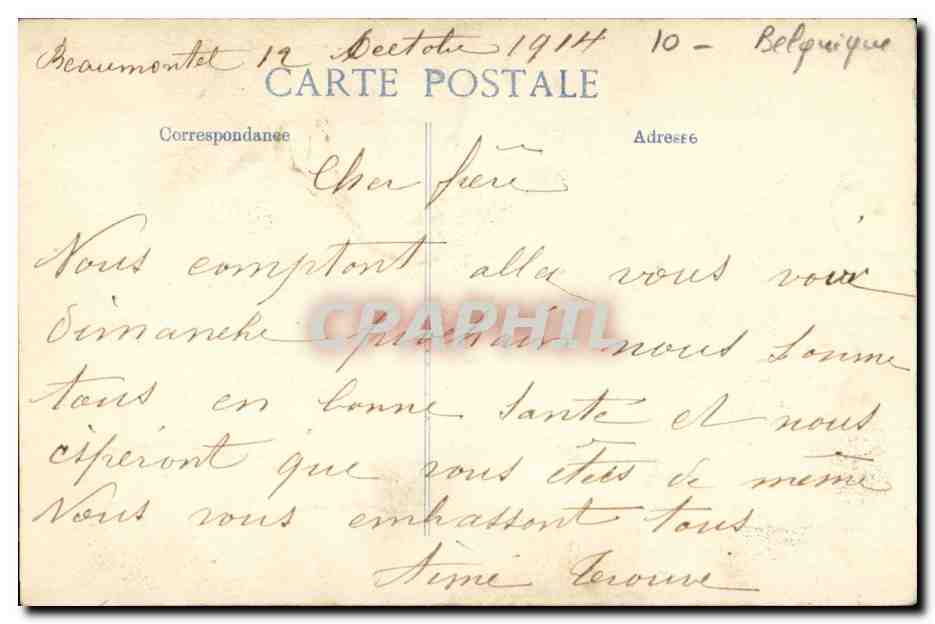 Beaumontel 12 Octobre 1914 10 - Belgnique
CARTE POSTALE
Correspondance Adresse
Cher frère
Nous comptont aller vous voir
dimanche prochain nous somme
tous en bonne santé et nous
espéront que vous êtes de même
Nous vous embrassont tous
Aimé
CPAPHIL